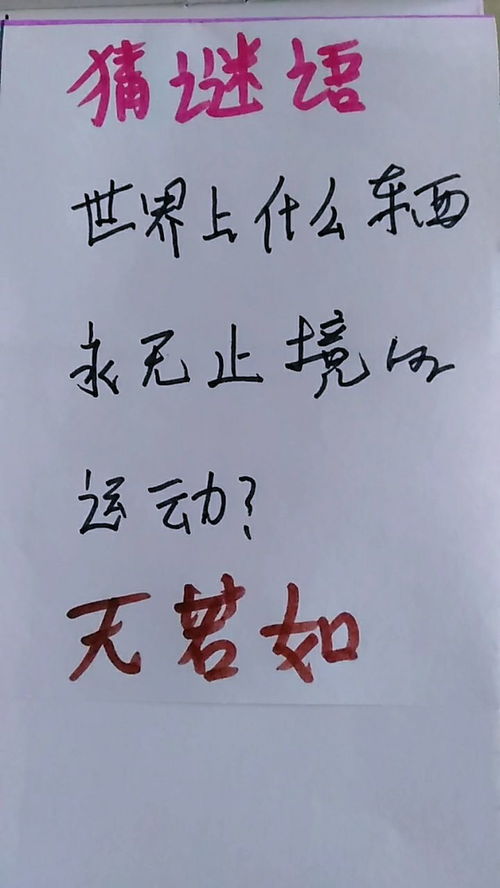 猜谜语
世界上什么东西
永无止境的
运动?
天若如